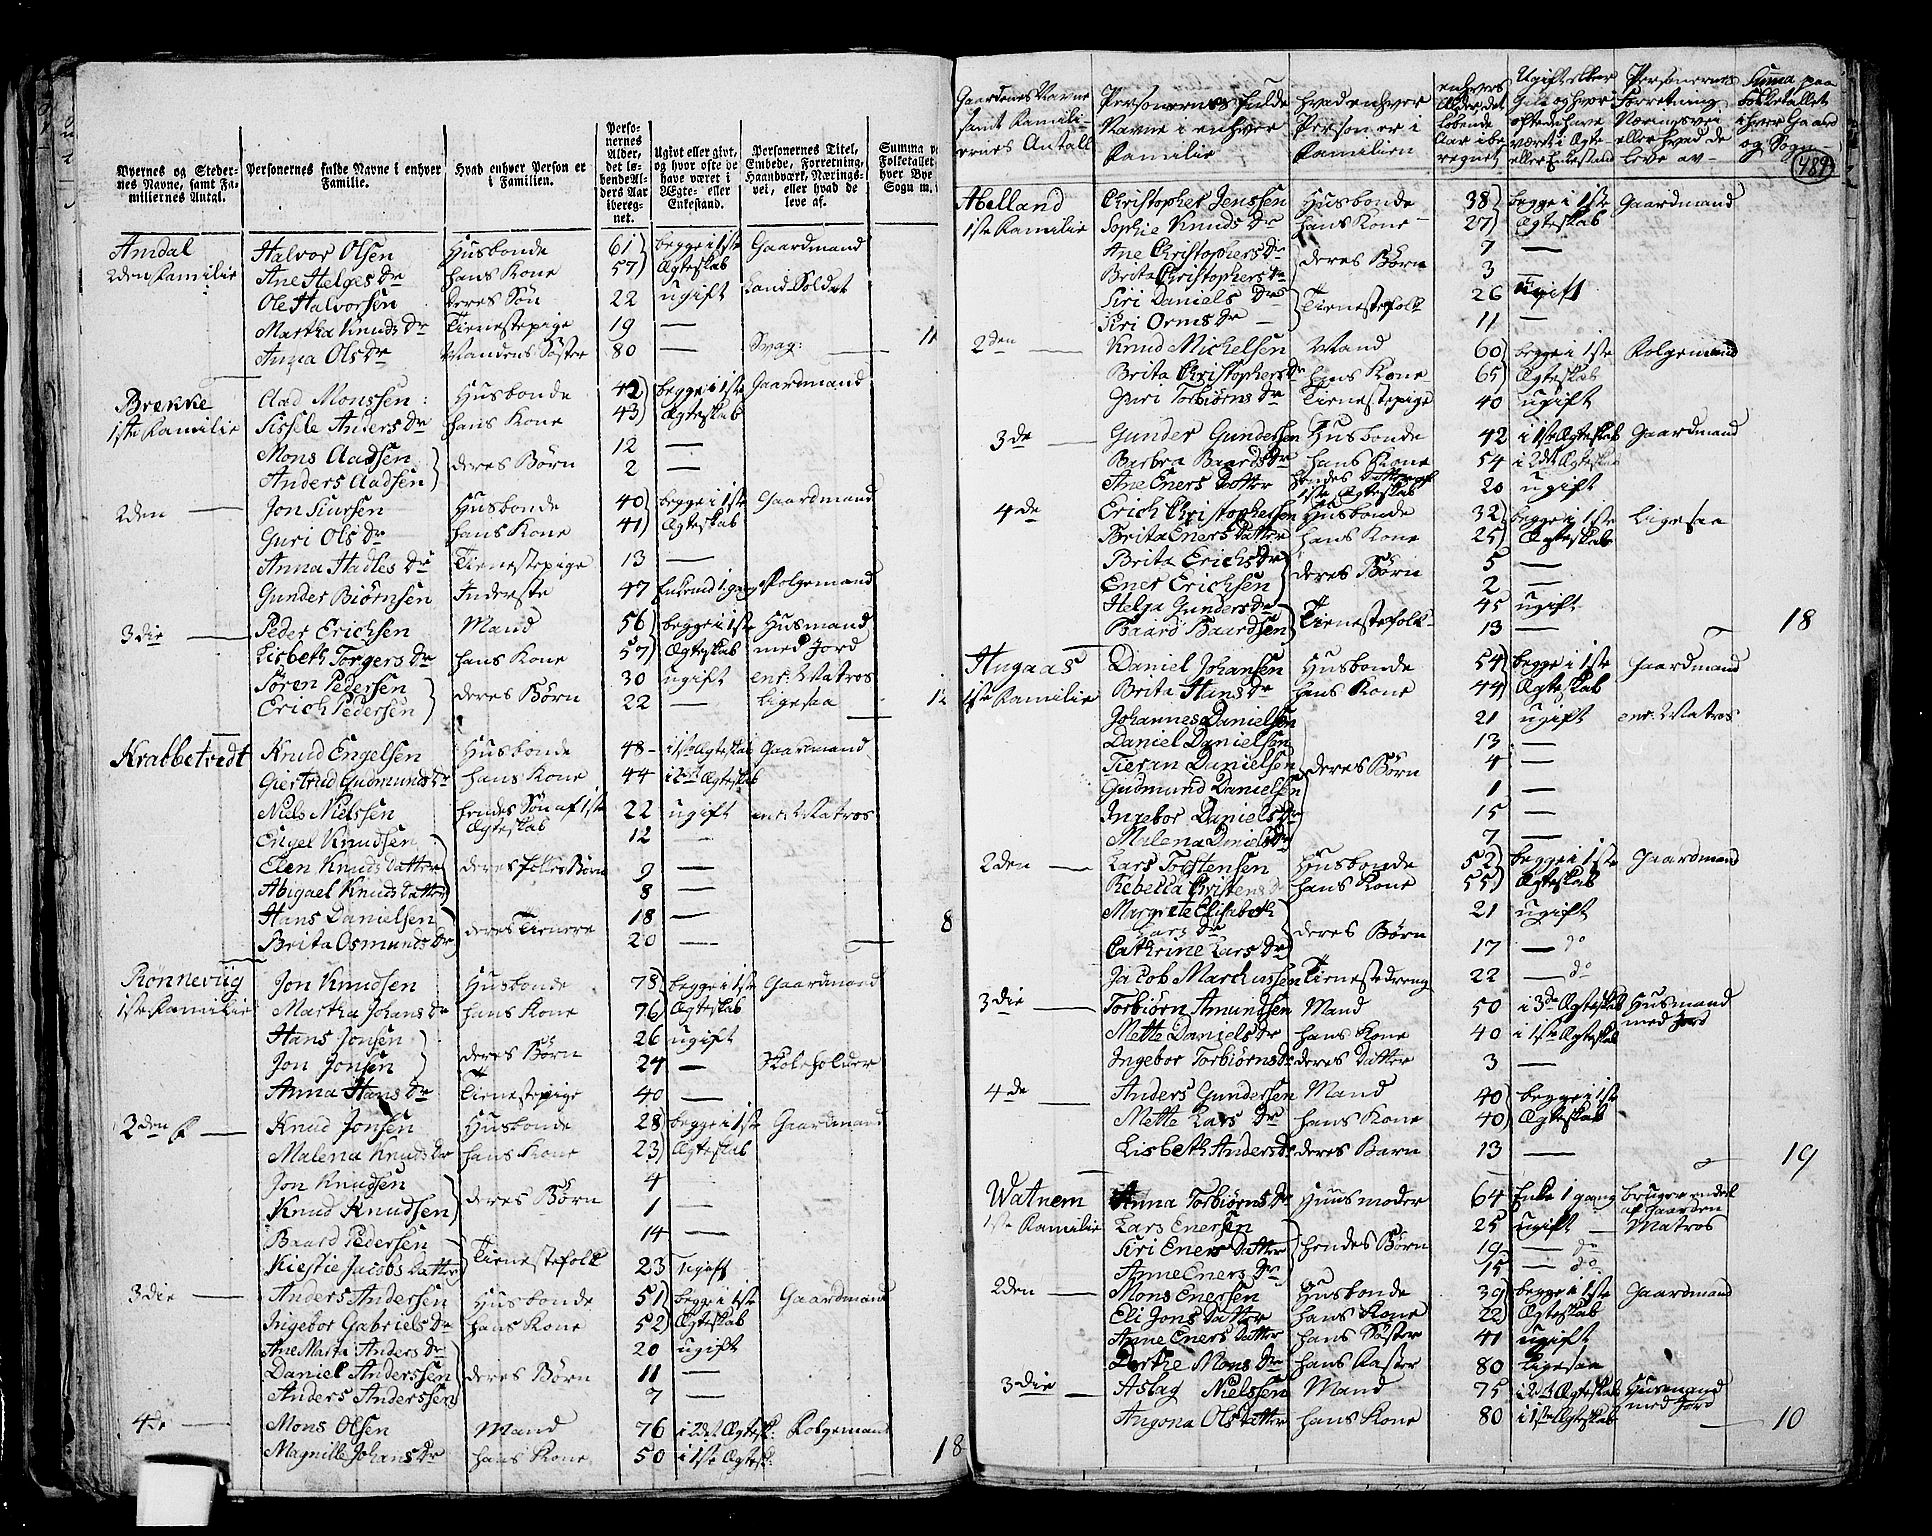 Byernes og Steder-
nes Navne, samt Fa-
miliernes Antal.
Personernes fulde Navne i enhver
Familie.
Hvad enhver Person er
i Familien.
Perso-
nernes
Alder,
det lø-
bende Al-
ders Aar
ibereg-
net.
Ugivt eller givt,
og hvor ofte de
have været i
Ægte- eller
Enkestand.
Personernes Titel,
Embede, Forretning,
Haandværk, Nærings-
vei, eller hvad de
leve af.
Summa p
Folketallet
hver Bye
Sogn m.
Amdal Halvor Olsen Husbonde 61) begge i 1ste Gaardmand
2den Familie Ane Helges Dr hans Kone 57) Ægteskab
Ole Halvorsen deres Søn 22 ugift Land-Soldat
Martha Knuds Dr Tienestepige 19 —
Anna Ols Dr Mandens Søster 80 — Svag: 11
Brekke Aad Monssen: Husbonde 42) begge i 1ste Gaardmand
1ste Familie Sissele Anders Dr hans Kone 43) Ægteskab
Mons Aadsen 12 —
Anders Aadsen deres Børn 2 —
2den Jon Siursen Husbonde 40) begge i 1ste Gaardmand
Guri Ols Dr hans Kone 41) Ægteskab
Anna Hadles Dr Tienestepige 13 —
Gunder Biørnsen Inderste 47 Enkemd 1 gang Rolgemand
3die Peder Erichsen Mand 56) begge i 1ste Husmand
Lisbeth Torgers Dr hans Kone 57) Ægteskab med Jord
Søren Pedersen 30 ugift enr. Matros
Erich Pedersen deres Børn 22 — ligesaa 12
Krabbetvedt Knud Engelsen Husbonde 48 i 1ste Ægteskab Gaardmand
Giertrud Gudmunds Dr hans Kone 44 i 2det Ægteskab
Niels Nielssen hendes Søn af 1ste Ægteskab 22 ugift enr. Matros
Engel Knudsen 12 —
Elen Knuds Datter deres fælles Børn 9 —
Abigael Knuds Datter 8 —
Hans Danielsen 18 —
Brita Osmunds Dr deres Tienere 20 — 8
Rønneviig Jon Knudsen Husbonde 78) begge i 1ste Gaardmand
1ste Familie Martha Johans Dr hans Kone 76) Ægteskab
Hans Jonsen 26 ugift
Jon Jonsen deres Børn 24 — Skoleholder
Anna Hans Dr Tienestepige 40 —
2den F Knud Jonsen Husbonde 28) begge i 1ste Gaardmand
Malena Knuds Dr hans Kone 23) Ægteskab
Jon Knudsen 4
Knud Knudsen deres Børn 1 —
Baard Pedersen 14 —
Kiestie Jacobs Datter Tienestefolk 23 ugift
3die Anders Andersen Husbonde 51) begge i 1ste Gaardmand
Ingebor Gabriels Dr hans Kone 52) Ægteskab
Ane Marta Anders Dr 20 ugift
Daniel Anderssen deres Børn 11 —
Anders Anderssen 7 —
4de Mons Olsen Mand 76 i 2det Ægtesk: Rolgemand
Magnille Johans Dr hans Kone 50 i 1ste Ægtesk: 18
Gaardenes Navne
samt Famili-
ernes Antall
Personernes fulde
Navne i enhver
Familie
hvad enhver
Person er i
Familien
enhvers
Alder, det
løbende
Aar ibe
regnet
Ugift eller
Gift og hvor
ofte de have
været i Ægte
eller Enkestand
Personernes
Forretning
Næringsvei
eller hvad de
leve av
Summa paa
Folketallet
i hver Gaard
og Sogn
489
Abelland Christopher Jenssen Husbonde 38) begge i 1ste Gaardmand
1ste Familie Sophie Knuds Dr hans Kone 27) Ægteskab
Ane Christophers Dr 7 —
Brita Christophers Dr deres Børn 3 —
Siri Daniels Dr 26 ugift
Siri Orms Dr Tienestefolk 11 —
2den Knud Michelsen Mand 60) begge i 1ste Rolgemand
Brita Christophers Dr hans Kone 65) Ægteskab
Guri Torbiørns Dr Tienestepige 40 ugift
3de Gunder Gundersen Husbonde 42 i 1ste Ægteskab Gaardmand
Barbra Baards Dr hans Kone 54 i 2det Ægteskab
Ane Eners Datter hendes Datter af 1ste Ægteskab 20 ugift
4de Erich Christophersen Husbonde 32) begge i 1ste Ligesaa
Brita Eners Datter hans Kone 25) Ægteskab
Brita Erichs Dr 5 —
Ener Erichsen deres Børn 2 —
Helga Gunders Dr 45 ugift
Baard Baardsen Tienestefolk 13 — 18
Hugaas Daniel Johansen Husbonde 54) begge i 1ste Gaardmand
1ste Familie Brita Hans Dr hans Kone 44) Ægteskab
Johannes Danielsen 21 ugift enr. Matros
Daniel Danielsen 13 —
Tieran Danielsen deres Børn 4 —
Gudmund Danielsen 1 —
Ingebor Daniels Dr 15 —
Malena Daniels Dr 7 —
2den Lars Torstensen Husbonde 52) begge i 1ste Gaardmand
Rebella Cristens Dr hans Kone 55) Ægteskab
Margrete Elisabeth Lars Dr 21 ugift
Cathrine Lars Dr deres Børn 17 — do
Jacob Marchussen Tienestedreng 22 — do
3die Torbiørn Amundsen Mand 50 i 3de Ægteskab Husmand
Mette Daniels Dr hans Kone 40 i 1ste Ægteskab med Jord
Ingebor Torbiørns Dr deres Datter 3 —
4de Anders Gundersen Mand 40) begge i 1ste
Mette Lars Dr hans Kone 40) Ægteskab
Lisbeth Anders Dr deres Barn 13 — 19
Watnem Anna Torbiørns Dr Huusmoder 64 Enke 1 gang bruger endel af Gaarden
1ste Familie Lars Enersen 25 ugift — Matros
Siri Eners Datter hendes Børn 19 — do
Anne Eners Dr 15 — do
2den Mons Enersen Husbonde 39) begge i 1ste Gaardmand
Eli Jons Datter hans Kone 22) Ægteskab
Anne Eners Datter hans Søster 41 ugift
Dorthe Mons Dr hans Faster 80 ligesaa
3die Aslag Nielssen Mand 75 i 2det Ægteskab Husmand
Angona Ols Datter hans Kone 80 i 1ste Ægteskab med Jord 10